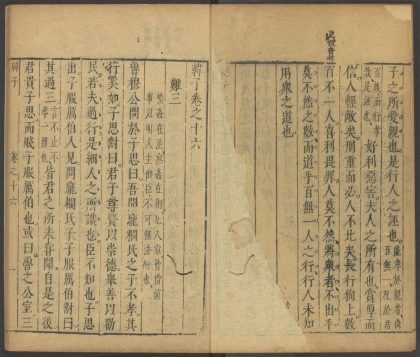 子之所愛親也是行人之誣也能孝於親者尚百無一
好利惡害夫人之所有也賞厚而
信人輕敵矣刑重而必人不北矣長行徇上數
百不一人喜利畏罪人莫不然將衆者不出乎
莫不然之數而道乎百無一人之行行人未知
用衆之道也
韓子卷之十六
難三
禁姦在法察姦在
事以明人主御臣不可無法術也
魯穆公問於子思曰吾聞龐𥹢氏之子不孝其
行奚如子思對曰君子尊賢以崇德舉善以勸
民若夫過行是細人之所識也臣不知也子思
出子服厲伯入見問龐𥹢氏子子服厲伯對曰
其過三皆君之所未嘗聞自是之後
君貴子思而賤子服厲伯也或曰魯之公室三
韓子 卷之十六